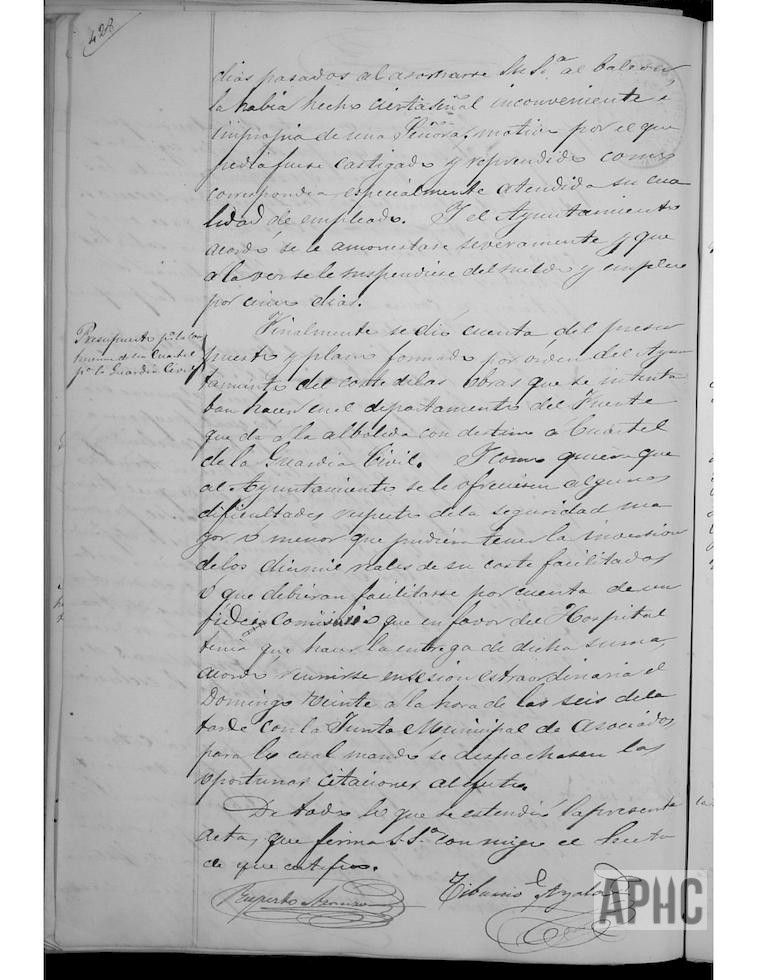 428
dias pasados al asomarse su S.ª al balcon,
la habia hecho cierta señal inconveniente e
impropia de una Señora; motivo por el que
pedia fuese castigado y reprendido como
correspondia especialmente atendida su cua
lidad de empleado. Y el Ayuntamiento
acordó se le amonestase severamente y que
a la vez se le suspendiese del sueldo y empleo
por cinco dias.
Presupuesto p.ª la cons
truccion de un Cuartel
p.ª la Guardia Civil
Finalmente se dió cuenta del presu
puesto y plano formado por orden del Ayun
tamiento del coste de las obras que se intenta
ban hacer en el departamento del Fuerte
que da a la albolida con destino a Cuartel
de la Guardia Civil. Y como quiera que
al Ayuntamiento se le ofreciesen algunas
dificultades respecto de la seguridad ma
yor o menor que pudiera tener la inversion
de los diez mil reales de su coste facilitados
o que debieran facilitarse por cuenta de un
fideicomisario que en favor del Hospital
tenia que hacer la entrega de dicha suma,
acordó reunirse en sesion estraordinaria el
Domingo veinte a la hora de las seis de la
tarde con la Junta Municipal de Asociados,
para lo cual mandó se despachasen las
oportunas citaciones al efecto.
De todo lo que se estendió la presente
acta, que firma S.Sª conmigo el Secreto
de que certifico.
Ruperto
Tiburcio Ayala
APHC